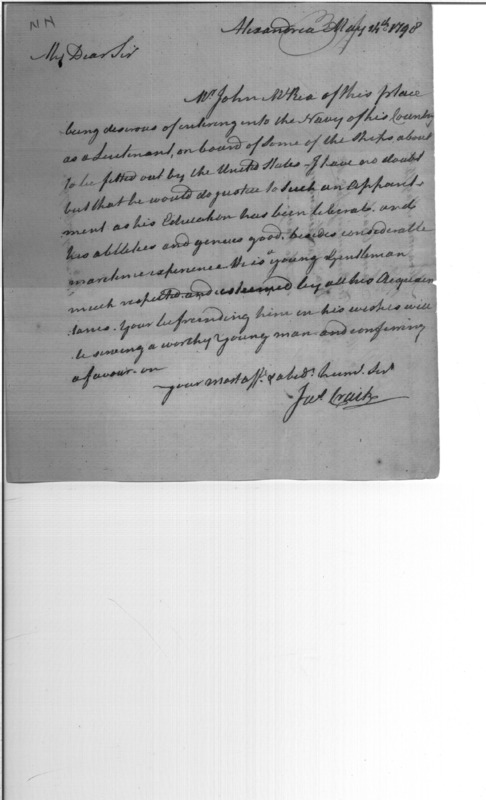 NN
Alexandria May 14th. 1798
My Dear Sir
Mr. John McRea of this place
being desirous of entering into the Navy of his Country
as a Lieutinant, on board of some of the Ships about
to be fitted out by the United States - I have no doubt
but that he would do justice to such an Appoint-
ment as his Education has been liberal. and
his abilities and genius good, besides considerable
maretime experience. He is a young Gentleman
much respected and esteemed by all his Acquain
tance. Your befrinding him in his wishes will
be serving a worthy young man and conferring
a favour on
your most aff. & obedt. huml. Sert
Jas. Craik